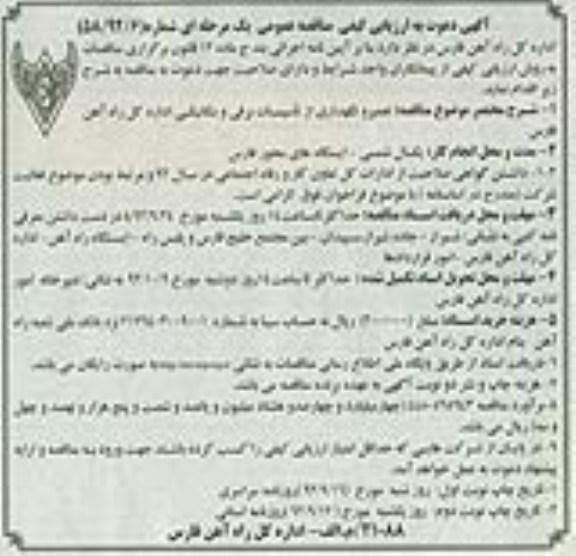 آگهی دعوت به ارزیابی کیفی مناقصه عمومی یک مرحله ای شماره (۵۸/۹۲/۶)
اداره کل راه آهن فارس در نظر دارد بنا بر آیین نامه اجرایی بند ج ماده ۱۲ قانون برگزاری مناقصات
به روش ارزیابی کیفی از پیمانکاران واجد شرایط و دارای صلاحیت جهت دعوت به مناقصه به شرح
زیر اقدام نماید.
۱- شرح مختصر موضوع مناقصه: تعمیر و نگهداری از تأسیسات برقی و مکانیکی اداره کل راه آهن
فارس
۲- مدت و محل انجام کار: یکسال شمسی - ایستگاه های محور فارس
۱-۲- داشتن گواهی صلاحیت از ادارات کل تعاون کار و رفاه اجتماعی در سال ۹۲ و مرتبط بودن موضوع فعالیت
شرکت (مندرج در اساسنامه) با موضوع فراخوان فوق الزامی است.
۳- مهلت و محل دریافت اسناد مناقصه: حداکثر تا ساعت ۱۴ روز یکشنبه مورخ در دست داشتن معرفی
نامه کتبی به نشانی: شیراز - جاده شیراز سپیدان - بین مجتمع خلیج فارس و پلیس راه - ایستگاه راه آهن - اداره
کل راه آهن فارس - امور قراردادها
۴- مهلت و محل تحویل اسناد تکمیل شده: حداکثر تا ساعت ۱۴ روز دوشنبه مورخ به نشانی دبیرخانه امور
اداره کل راه آهن فارس
۵- هزینه خرید اسناد: مبلغ ریال به حساب سیبا به شماره نزد بانک ملی شعبه راه
آهن بنام اداره کل راه آهن فارس
۶- دریافت اسناد از طریق پایگاه ملی اطلاع رسانی مناقصات به نشانی به صورت رایگان می باشد.
۷- هزینه چاپ و نشر دو نوبت آگهی به عهده برنده مناقصه می باشد.
۸- برآورد مناقصه (چهار میلیارد و چهارصد و هشتاد میلیون و پانصد و شصت و پنج هزار و نهصد و چهل
و ریال می باشد.
۹- در پایان از شرکت هایی که حداقل امتیاز ارزیابی کیفی را کسب کرده باشند جهت ورود به مناقصه و ارایه
پیشنهاد دعوت به عمل خواهد آمد.
۱- تاریخ چاپ نوبت اول: روز شنبه مورخ روزنامه سراسری
۲- تاریخ چاپ نوبت دوم: روز یکشنبه مورخ روزنامه استانی
۳۱۰۸۸/م الف - اداره کل راه آهن فارس